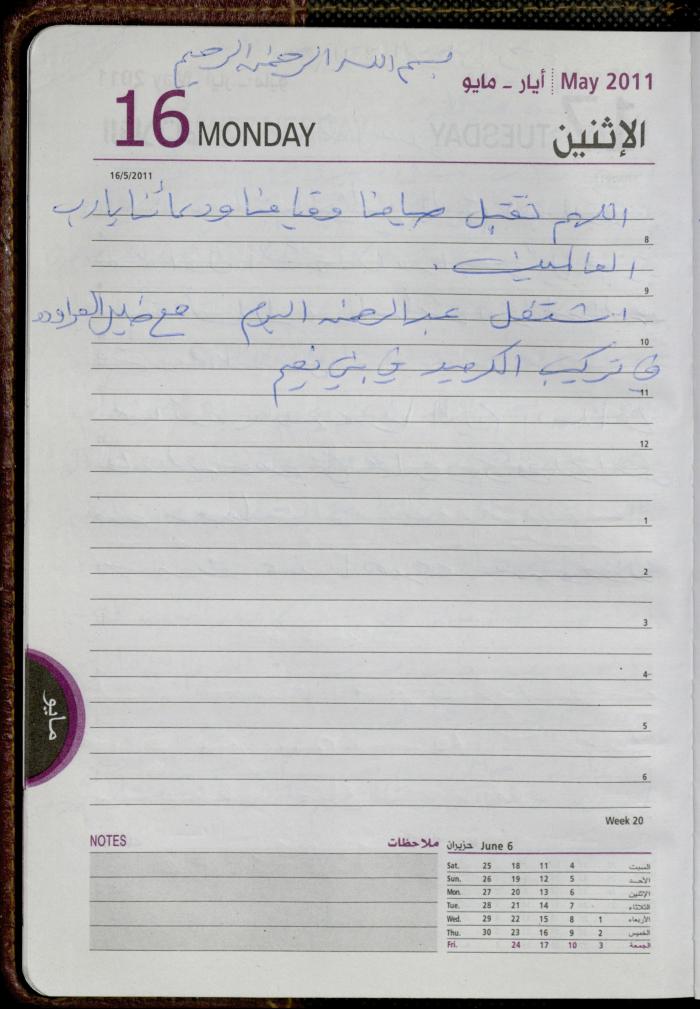 بسم الله الرحمن الرحيم
أيار - مايو May 2011
16 MONDAY الإثنين
16/5/2011
اللهم تقبل صيامنا وقيامنا ودعائنا يا رب
8
العالمين .
9
اشتغل عبد الرحمن اليوم مع خليل
10
في تركيب الكرميد في بني نعيم
11
12
1
2
3
4
5
6
مايو
Week 20
NOTES ملاحظات
June 6 حزيران
Sat. 25 18 11 4 السبت
Sun. 26 19 12 5 الأحد
Mon. 27 20 13 6 الإثنين
Tue. 28 21 14 7 الثلاثاء
Wed. 29 22 15 8 1 الأربعاء
Thu. 30 23 16 9 2 الخميس
Fri. 24 17 10 3 الجمعة